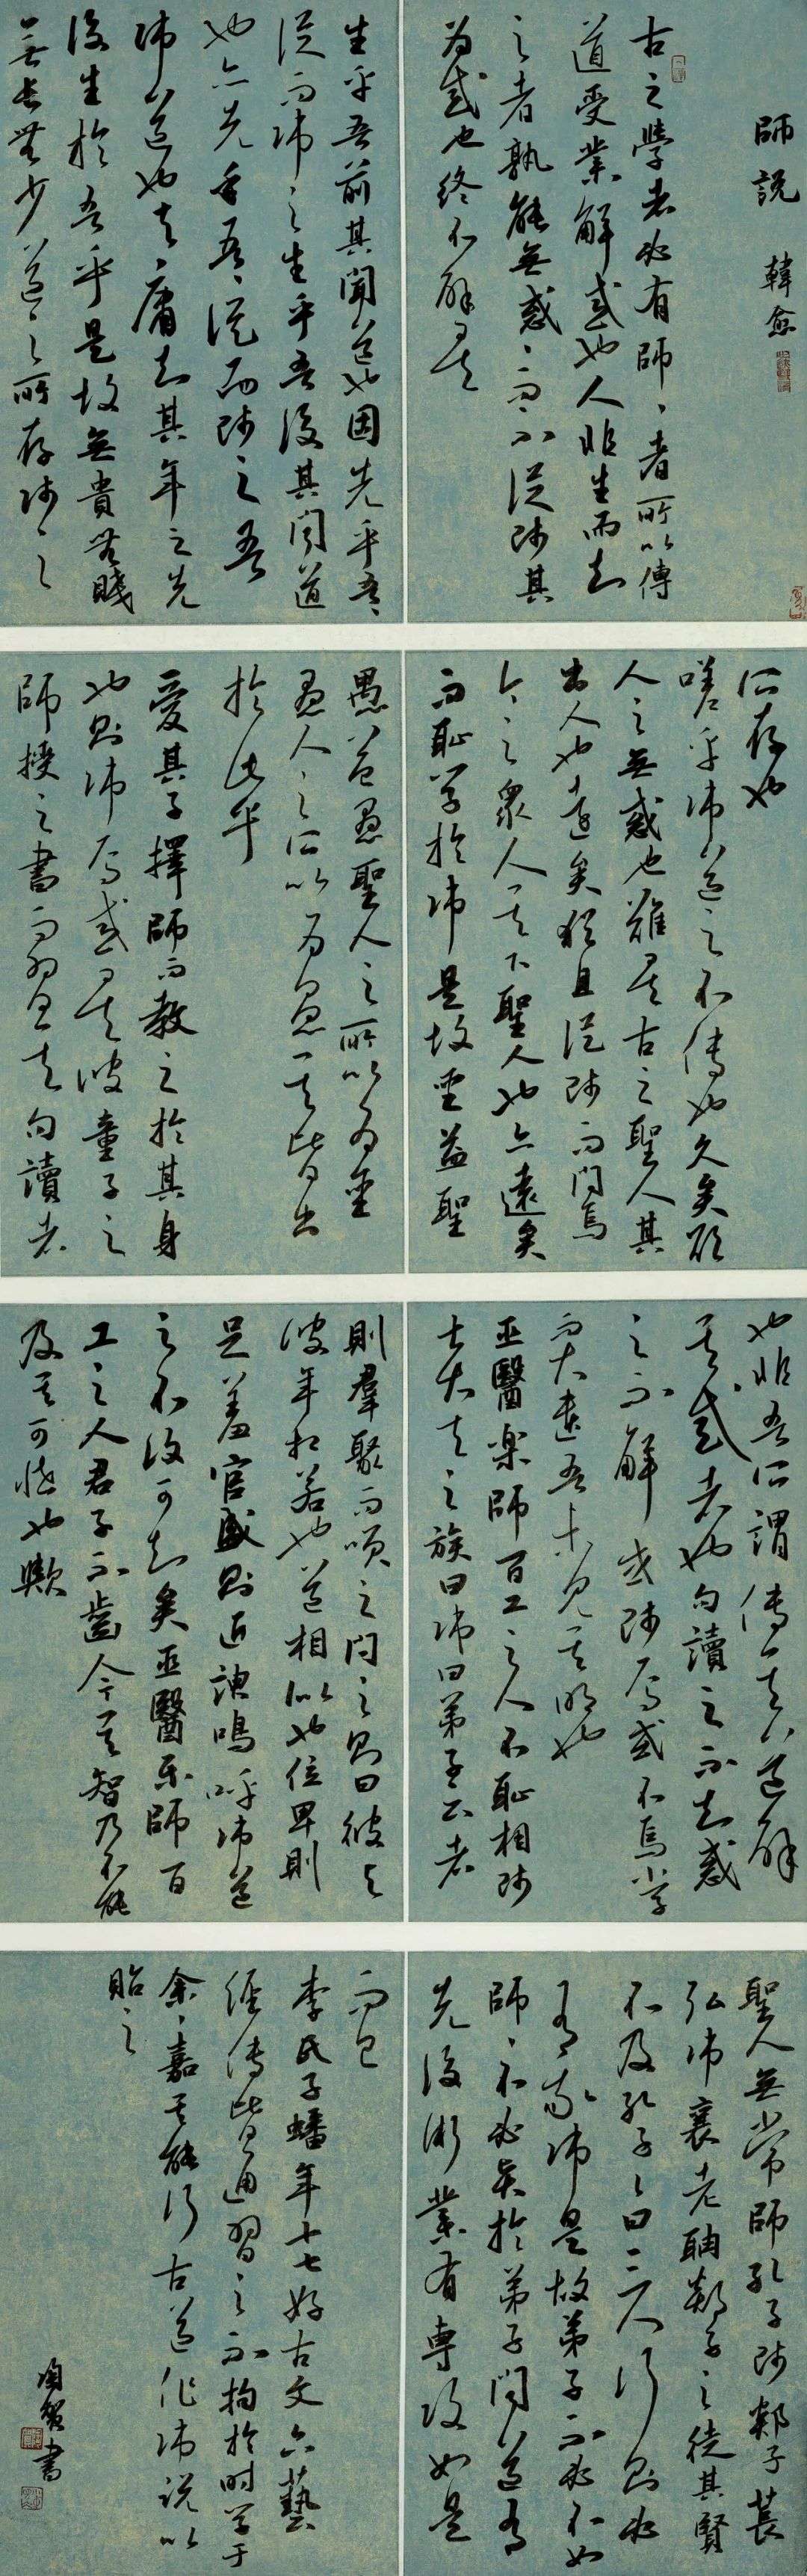 師說 韓愈
古之學者必有師、者所以傳
道受業解惑也人非生而知
之者孰能無惑、而不從師其
為惑也終不解矣
生乎吾前其聞道也固先乎吾、
從而師之生乎吾後其聞道
也亦先乎吾、從而師之吾
師道也夫、庸知其年之先
後生於吾乎是故無貴無賤
無長無少道之所存師之
所存也
嗟乎師道之不傳也久矣欲
人之無惑也難矣古之聖人其
出人也遠矣猶且從師而問焉
今之眾人其下聖人也亦遠矣
而恥學於師是故聖益聖
愚益愚聖人之所以為聖
愚人之所以為愚其皆出
於此乎
愛其子擇師而教之於其身
也則師焉惑矣彼童子之
師授之書而習其句讀者
也非吾所謂傳其道解
其惑者也句讀之不知惑
之不解或師焉或不焉小學
而大遺吾未見其明也
巫醫樂師百工之人不恥相師
士大夫之族曰師曰弟子云者
則群聚而笑之問之則曰彼與
彼年相若也道相似也位卑則
足羞官盛則近諛嗚呼師道
之不復可知矣巫醫樂師百
工之人君子不齒今其智乃不能
及其可怪也歟
聖人無常師孔子師郯子萇
弘師襄老聃郯子之徒其賢
不及孔子、曰三人行則必
有我師是故弟子不必不如
師、不必賢於弟子聞道有
先後術業有專攻如是
而已
李氏子蟠年十七好古文六藝
經傳皆通習之不拘於時學于
余、嘉其能行古道作師說以
貽之
書